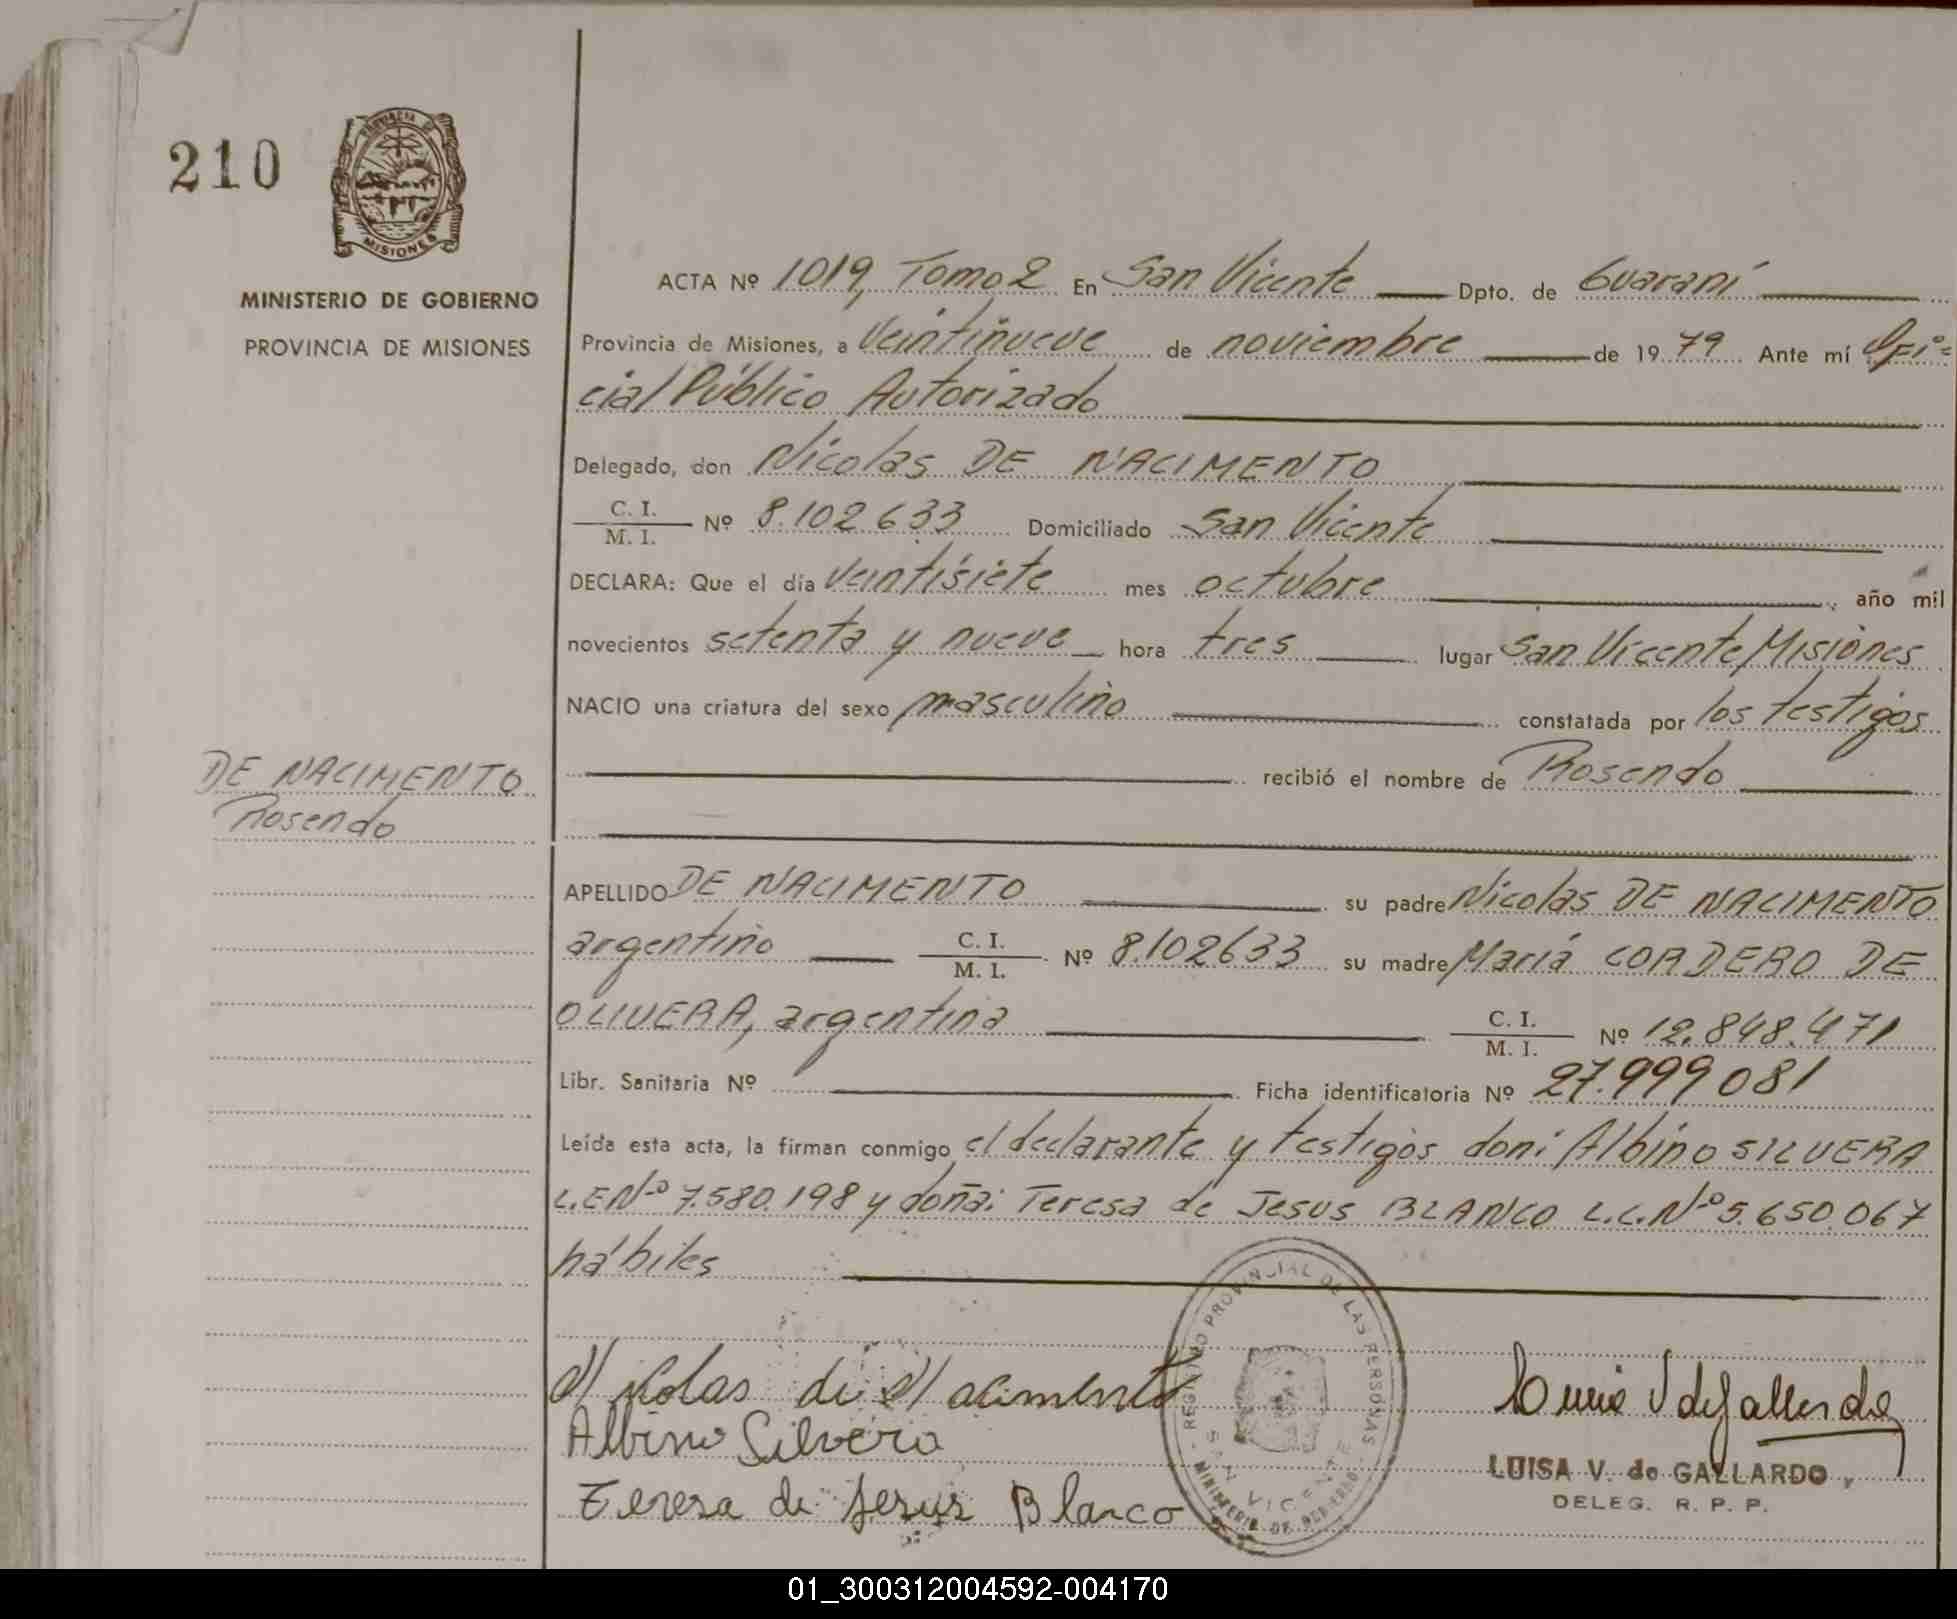 210
PROVINCIA DE
MISIONES
MINISTERIO DE GOBIERNO
PROVINCIA DE MISIONES
ACTA Nº 1019, Tomo 2 En San Vicente Dpto. de Guaraní
Provincia de Misiones, a veintinueve de noviembre de 1979 Ante mí Ofi=
cial Público Autorizado
Delegado, don Nicolas DE NACIMENTO
C. I. / M. I. Nº 8.102.633 Domiciliado San Vicente
DECLARA: Que el día veintisiete mes octubre, año mil
novecientos setenta y nueve hora tres lugar San Vicente, Misiones
NACIO una criatura del sexo masculino constatada por los testigos
recibió el nombre de Rosendo
DE NACIMENTO
Rosendo
APELLIDO DE NACIMENTO su padre Nicolas DE NACIMENTO
argentino C. I. / M. I. Nº 8.102633 su madre María CORDERO DE
OLIVERA, argentina C. I. / M. I. Nº 12.848.471
Libr. Sanitaria Nº Ficha identificatoria Nº 27.999081
Leída esta acta, la firman conmigo el declarante y testigos don: Albino SILVERA
L.E Nº 7.580.198 y doña: Teresa de Jesus BLANCO L.C. Nº 5.650.067
hábiles
Nicolas de Nacimento
Albino Silvera
Teresa de Jesus Blanco
REGISTRO PROVINCIAL DE LAS PERSONAS
SAN VICENTE
MINISTERIO DE GOBIERNO
LUISA V. de GALLARDO
DELEG. R. P. P.
01_300312004592-004170